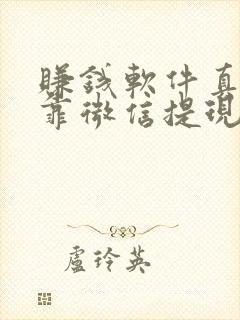 賺錢軟件真
靠微信提現
盧玲英